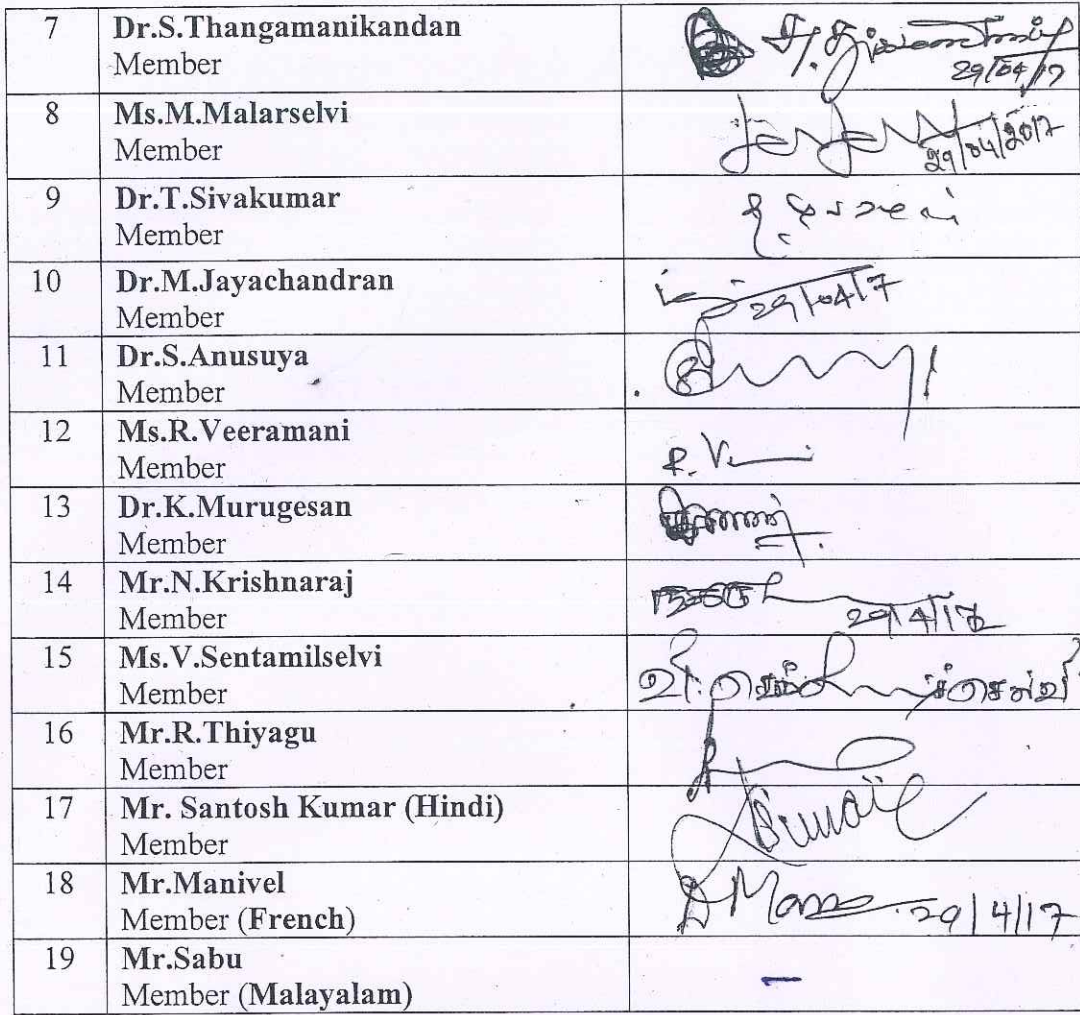 7 Dr.S.Thangamanikandan
Member
29/04/17
8 Ms.M.Malarselvi
Member
29/04/2017
9 Dr.T.Sivakumar
Member
10 Dr.M.Jayachandran
Member
29/04/17
11 Dr.S.Anusuya
Member
12 Ms.R.Veeramani
Member
R. V
13 Dr.K.Murugesan
Member
14 Mr.N.Krishnaraj
Member
29/4/17
15 Ms.V.Sentamilselvi
Member
16 Mr.R.Thiyagu
Member
17 Mr. Santosh Kumar (Hindi)
Member
18 Mr.Manivel
Member (French)
29/4/17
19 Mr.Sabu
Member (Malayalam)
–